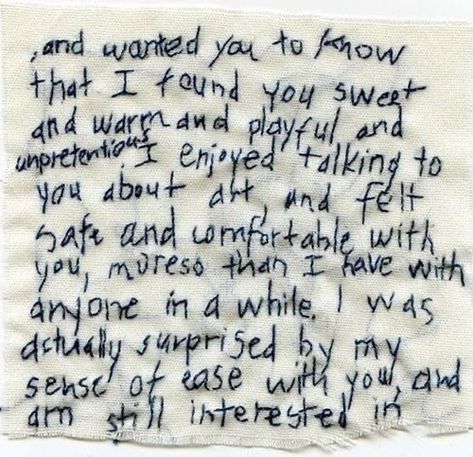 , and wanted you to know
that I found you sweet
and warm and playful and
unpretentious. I enjoyed talking to
you about art, and felt
safe and comfortable with
you, moreso than I have with
anyone in a while. I was
actually surprised by my
sense of ease with you, and
am still interested in